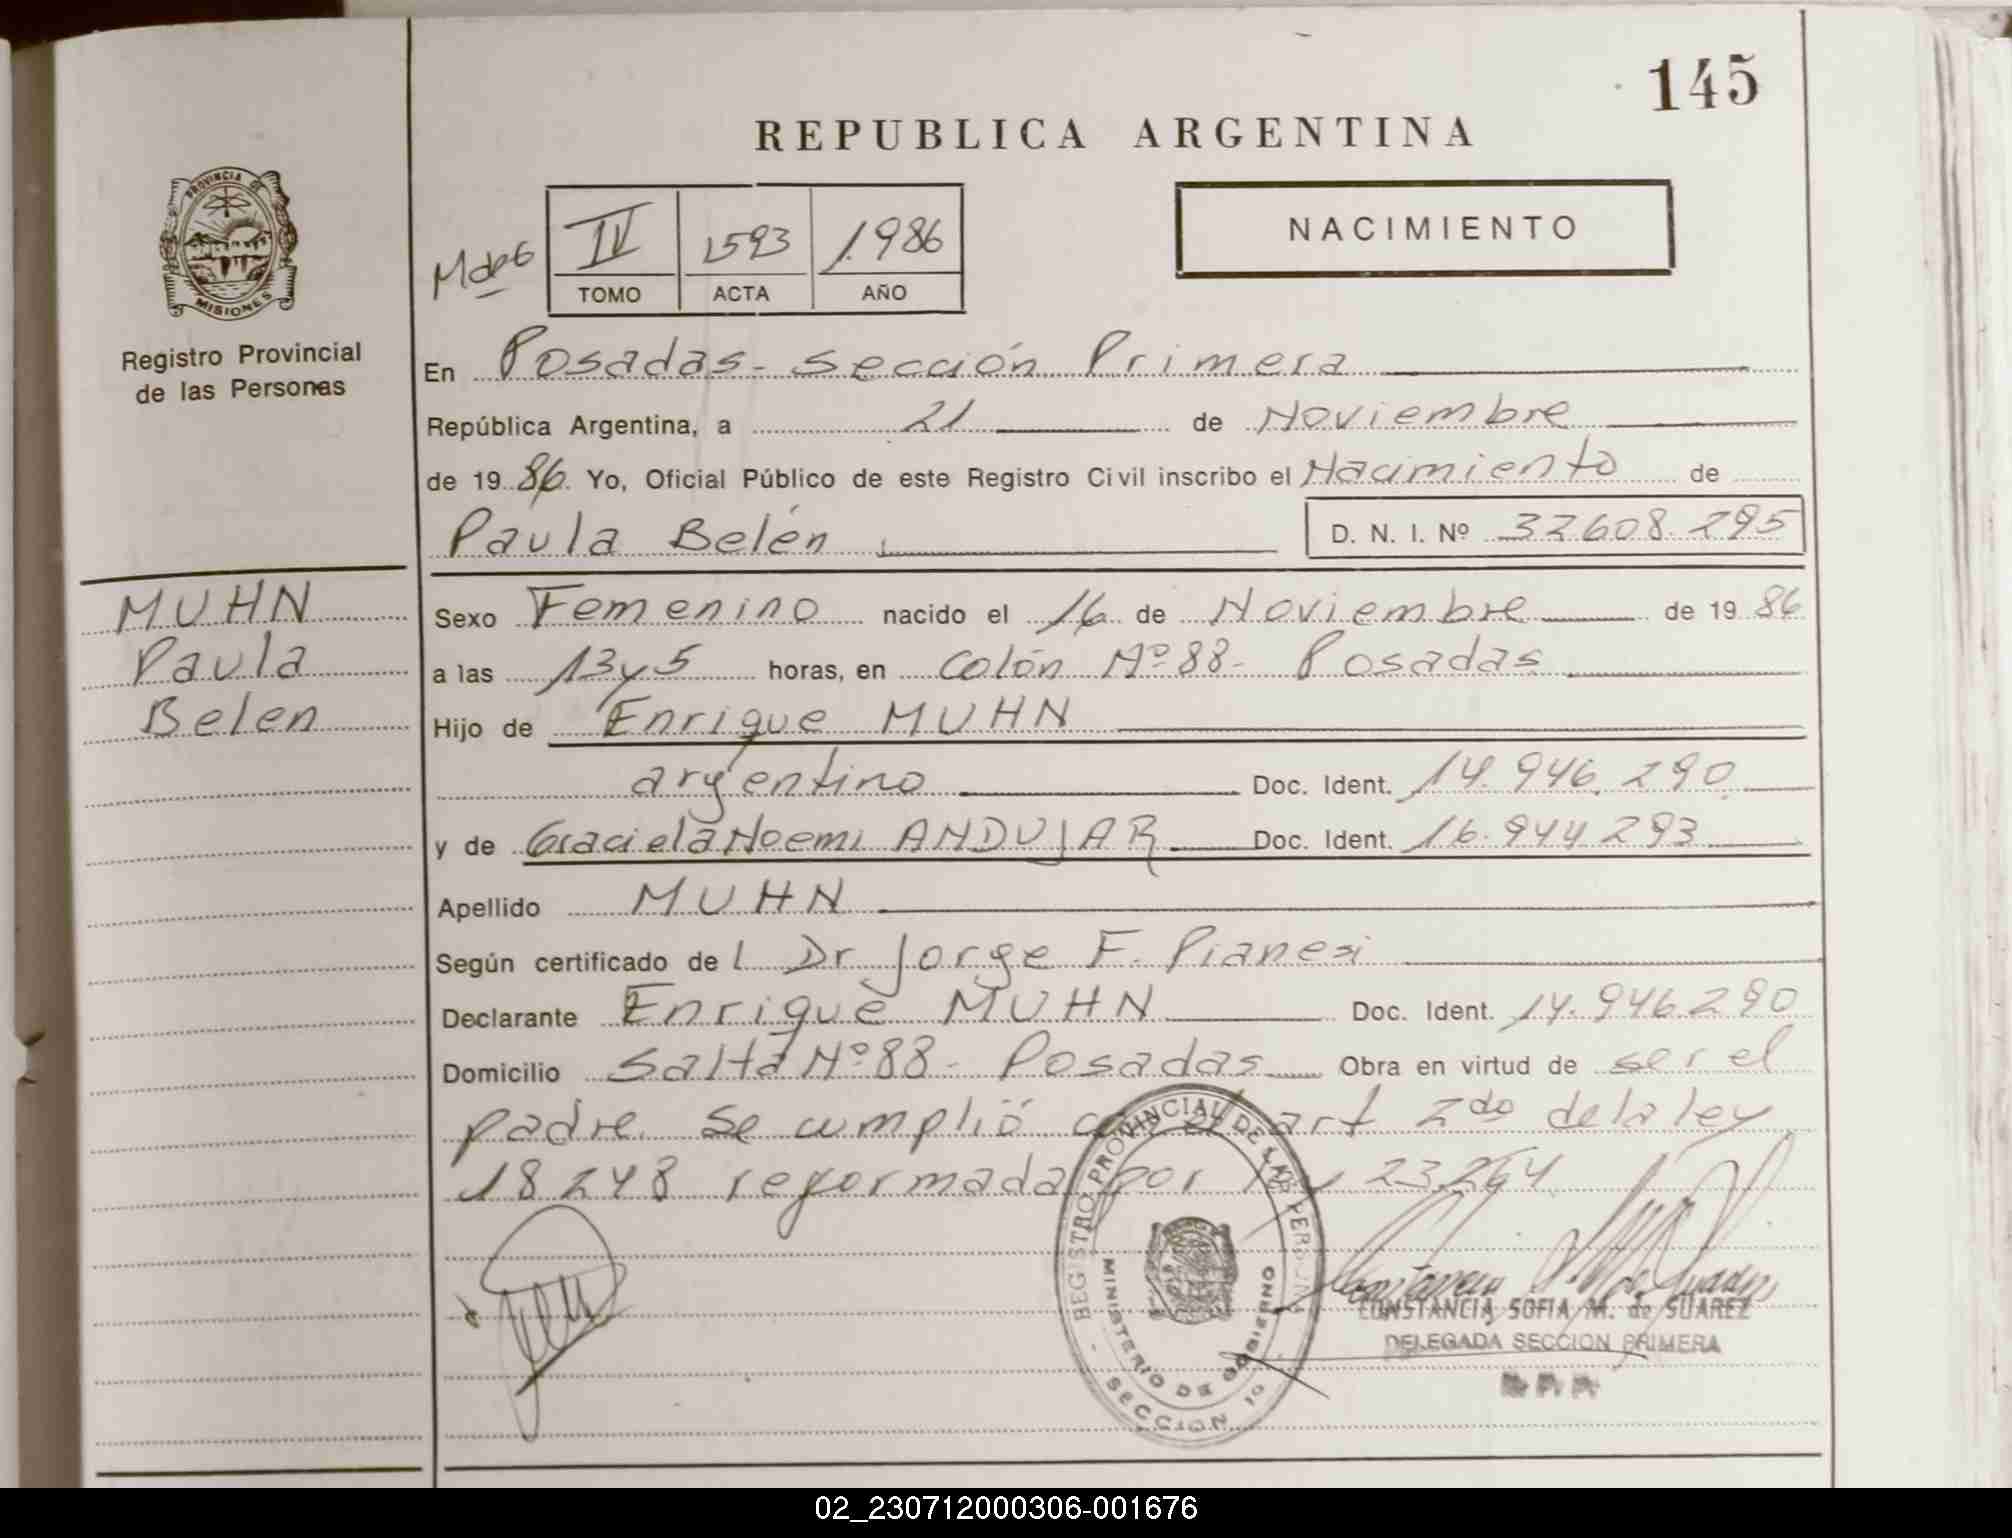 145
REPUBLICA ARGENTINA
PROVINCIA DE
MISIONES
Registro Provincial
de las Personas
IV 1593 1.986
TOMO ACTA AÑO
NACIMIENTO
En Posadas - Sección Primera
República Argentina, a 21 de Noviembre
de 1986. Yo, Oficial Público de este Registro Civil inscribo el Nacimiento de
Paula Belén D. N. I. Nº 32608.295
MUHN
Paula
Belen
Sexo Femenino nacido el 16 de Noviembre de 1986
a las 13 y 5 horas, en Colón Nº 88- Posadas
Hijo de Enrique MUHN
argentino Doc. Ident. 14.946.290
y de Graciela Noemi ANDUJAR Doc. Ident. 16.944.293
Apellido MUHN
Según certificado del Dr Jorge F. Pianesi
Declarante Enrique MUHN Doc. Ident. 14.946.290
Domicilio Salta Nº 88 - Posadas Obra en virtud de ser el
padre. Se cumplió con el art 2do de la ley
18248 reformada por ley 23.264
REGISTRO PROVINCIAL DE LAS PERSONAS
MINISTERIO DE GOBIERNO
SECCION 1a
CONSTANCIA SOFIA M. de SUAREZ
DELEGADA SECCION PRIMERA
02_230712000306-001676